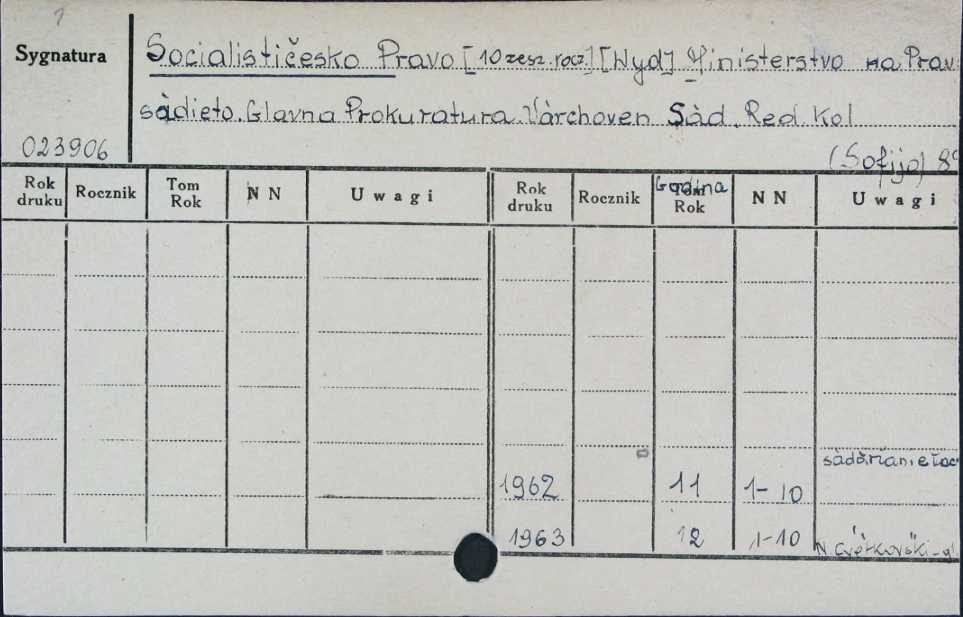 Sygnatura
Socialističesko Pravo [10 zesz. rocz.] [Wyd] Ministerstvo на Prav
sàdieto. Glavna Prokuratura. Vàrchoven Sàd. Red. Kol
023906
(Sofija) 8°
Rok druku Rocznik Tom Rok NN Uwagi Rok druku Rocznik Godina Rok NN Uwagi
1962 11 1-10
1963 12 1-10